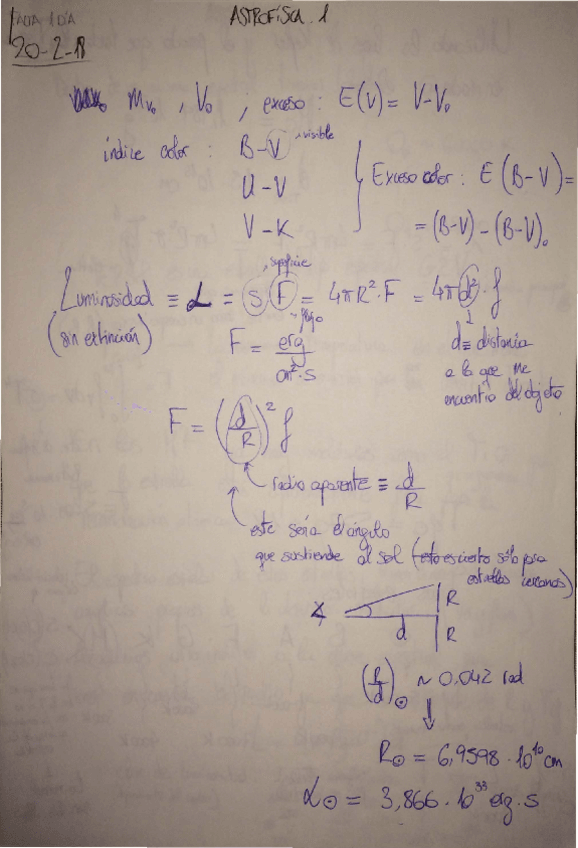 FALTA 1 DÍA
ASTROFÍSICA. 1
20-2-18
m_v₀ , V₀ , exceso : E(V) = V-V₀
índice color : B-V → visible
U-V
V-K
Exceso color : E(B-V) =
= (B-V) - (B-V)₀
superficie
Luminosidad ≡ L = S · F = 4πR²·F = 4πd²·f
flujo
(sin extinción)
F = erg / cm²·s
d ≡ distancia
a la que me
encuentro del objeto
F = (d/R)² f
radio aparente ≡ d/R
este sería el ángulo
que sustiende al sol (esto es cierto sólo para
estrellas cercanas)
∢
R
d
R
(R/d)⊙ ~ 0,042 rad
R⊙ = 6,9598 · 10¹⁰ cm
L⊙ = 3,866 · 10³³ erg · s